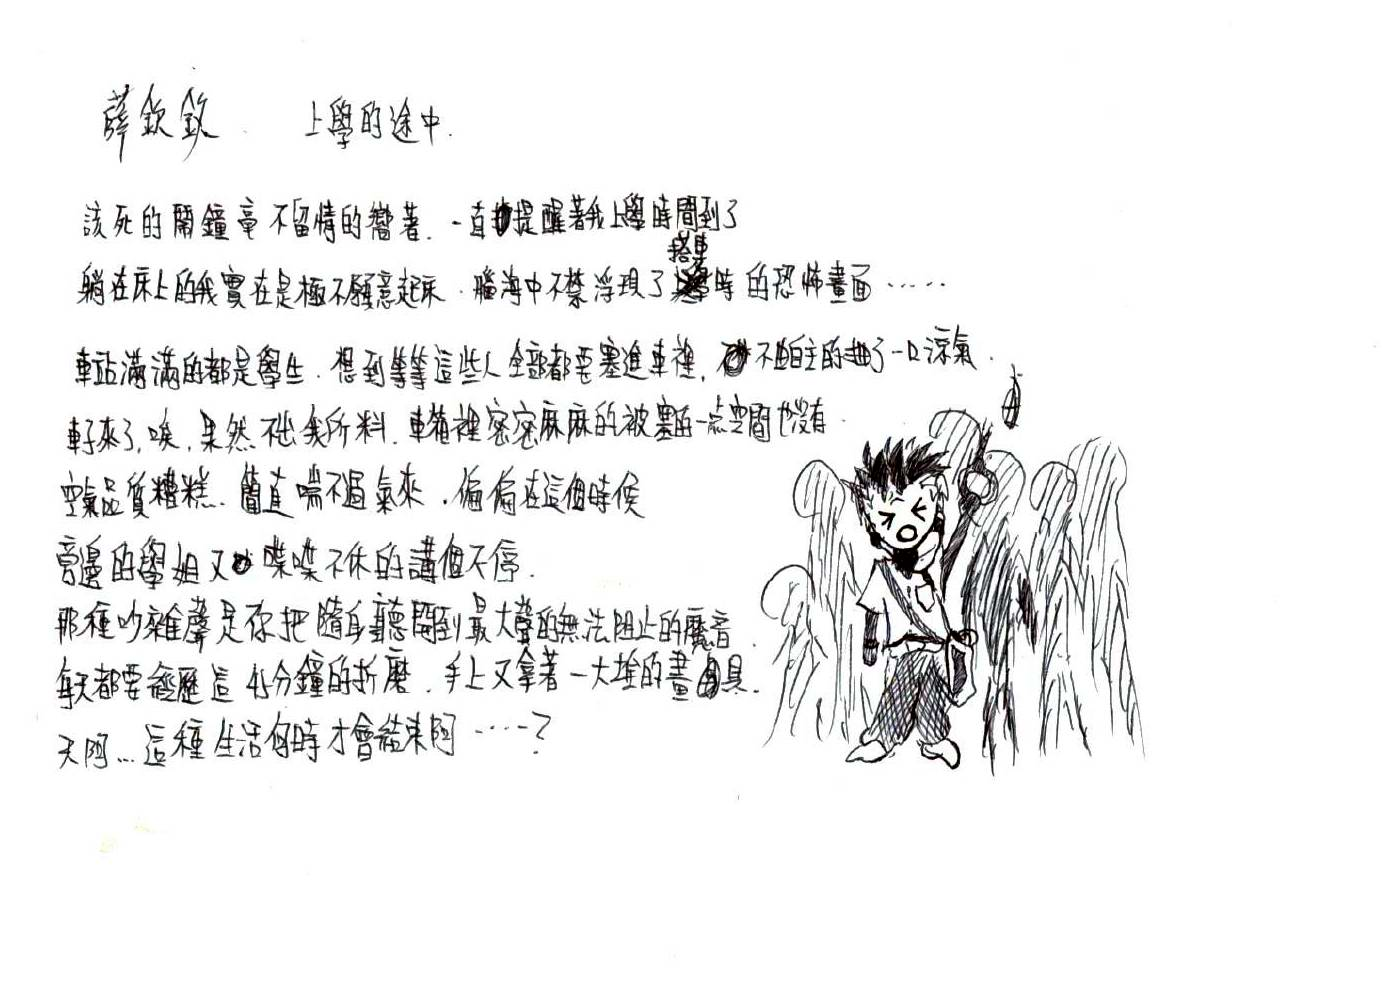 薛欽銘 上學的途中.
該死的鬧鐘毫不留情的響著.一直提醒著我上學時間到了
躺在床上的我實在是極不願意起床.腦海中不禁浮現了搭車時的恐怖畫面……
車站滿滿的都是學生.想到等等這些人全部都要塞進車裡,不由自主的抽了一口涼氣.
車子來了,唉,果然不出我所料.車箱裡密密麻麻的被塞的一點空間也沒有.
空氣品質糟糕.簡直喘不過氣來.偏偏在這個時候
旁邊的學姐又喋喋不休的講個不停.
那種吵雜聲是你把隨身聽開到最大聲的無法阻止的魔音.
每天都要經歷這45分鐘的折磨.手上又拿著一大堆的畫具.
天阿…這種生活何時才會結束阿……?